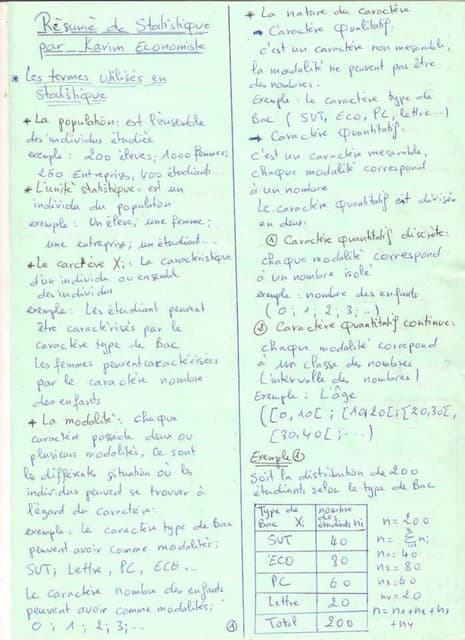 Résumé de Statistique
par _ Karim Economiste
* Les termes utilisés en
Statistique
+ La population: est l'ensemble
des individus étudiée
exemple : 200 élèves; 1000 femmes;
250 Entreprises, 400 étudiants...
* L'unité statistique: est un
individu du population
exemple: Un élève; une femme;
une entreprise; un étudiant...
* Le carctère Xi: La caractéristique
d'un individu ou ensembl
des individus
exemple: Les étudiant peuvent
être caractérisés par le
caractère type de Bac
Les femmes peuvent caractérisées
par le caractère nombre
des enfants
+ La modalité: chaque
caractère possède deux ou
plusieurs modalités, ce sont
les différents situation où les
individus peuvent se trouver à
l'égard du caractère:
exemple: le caractère type de Bac
peuvent avoir comme modalités;
SUT; Lettre, PC, ECO...
Le caractère nombre des enfants
peuvent avoir comme modalités;
0 ; 1 ; 2 ; 3; ...
1
* La nature du caractère
→ Caractère Qualitatif:
c'est un caractère non mesurable,
la modalité ne peuvent pas être
des nombres.
Exemple: le caractère type de
Bac ( SUT, ECO, PC, lettre...)
→ Caractère Quantitatif:
c'est un caractère mesurable,
chaque modalité correspond
à un nombre
Le caractère quantitatif est divisée
en deux:
① Caractère quantitatif discrète:
chaque modalité correspond
à un nombre isolé
exemple: nombre des enfants
( 0 ; 1 ; 2 ; 3 ; ...)
② Caractère quantitatif continue:
chaque modalité correpond
à un classe des nombres
(intervalle des nombres)
Exemple: L'âge
([0,10[ ; [10,20[ ; [20,30[,
[30,40[ ; ...)
Exemple ①
Soit la distribution de 200
étudiants selon le type de Bac
Type de Bac Xi nombre des étudiants ni
SUT 40
ECO 80
PC 60
Lettre 20
Total 200
n = 200
n = Σ ni
n1 = 40
n2 = 80
n3 = 60
n4 = 20
n = n1+n2+n3
+n4